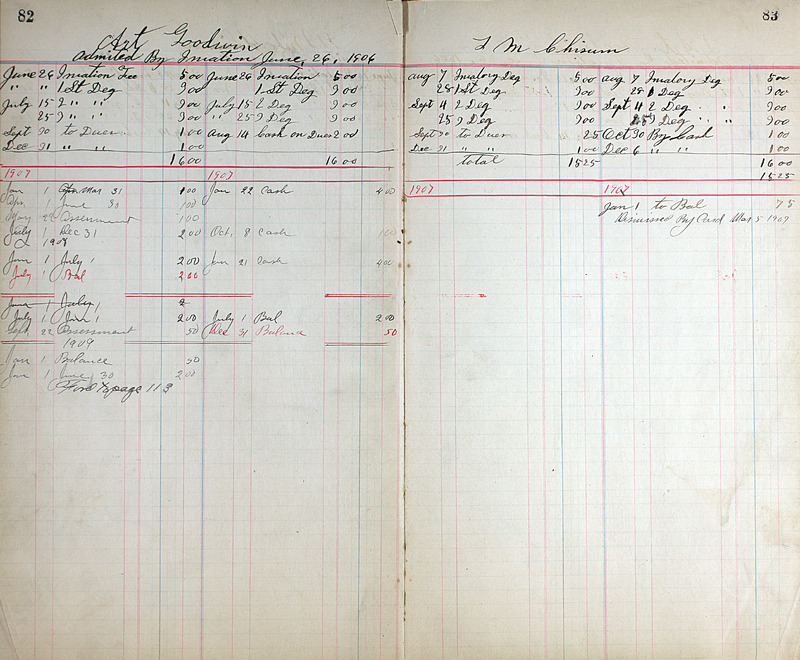 82
Art Goodwin
Admited By Iniation June, 26, 1906
June 26 Iniation Fee 5 00 June 26 Iniation 5 00
" " 1 St Deg 3 00 1 St Deg 3 00
July 15 2 " " 3 00 July 15 2 Deg 3 00
25 3 " " 3 00 " 25 3 Deg 3 00
Sept 30 to Dues 1 00 Aug 14 Cash on Dues 2 00
Dec 31 " " 1 00
16 00 16 00
1907 1907
Jan 1 Mar 31 1 00 Jan 22 Cash 4 00
Apr. 1 June 30 1 00
May 22 Assessment 1 00
July 1 Dec 31 2 00 Oct. 8 Cash 1 00
1908
Jan 1 July 1 2 00 Jan 21 Cash 4 00
July 1 Bal 2 00
June 1 July 1 2
July 1 Jan 1 2 00 July 1 Bal 2 00
Sept. 22 Assessment 50 Dec 31 Balance 50
1909
Jan 1 Balance 50
Jan 1 June 30 2 00
Ford to page 113
83
T M Chisum
Aug 7 Iniatory Deg 5 00 Aug 7 Iniatory Deg 5 00
28 1 St Deg 3 00 28 1 Deg 3 00
Sept 4 2 Deg 3 00 Sept 4 2 Deg " " 3 00
25 3 Deg 3 00 25 3 Deg " " 3 00
Sept 30 to Dues 25 Oct 30 By Cash 1 00
Dec 31 " " 1 00 Dec 6 " " 1 00
total 15 25 16 00
15 25
1907 1907
Jan 1 to Bal 75
Dismissed By Card Mar 5 1907